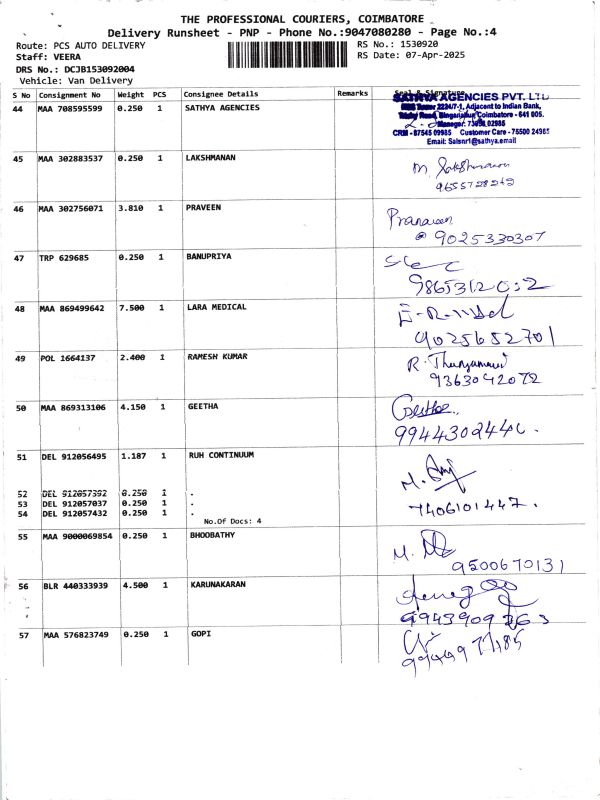 THE PROFESSIONAL COURIERS, COIMBATORE
Delivery Runsheet - PNP - Phone No.:9047080280 - Page No.:4
Route: PCS AUTO DELIVERY RS No.: 1530920
Staff: VEERA RS Date: 07-Apr-2025
DRS No.: DCJB153092004
Vehicle: Van Delivery
S No Consignment No Weight PCS Consignee Details Remarks Seal & Signature
44 MAA 708595599 0.250 1 SATHYA AGENCIES
SATHYA AGENCIES PVT. LTD
2224/7-1, Adjacent to Indian Bank,
Road, Singanallur, Coimbatore - 641 005.
Manager:
CRM - 87545 09985 Customer Care - 75500 24985
Email: Salsnr1@sathya.email
45 MAA 302883537 0.250 1 LAKSHMANAN
M. Lakshmanan
46 MAA 302756071 3.810 1 PRAVEEN
9025330307
47 TRP 629685 0.250 1 BANUPRIYA
48 MAA 869499642 7.500 1 LARA MEDICAL
9025652701
49 POL 1664137 2.400 1 RAMESH KUMAR
9363042072
50 MAA 869313106 4.150 1 GEETHA
Geetha
51 DEL 912056495 1.187 1 RUH CONTINUUM
52 DEL 912057392 0.250 1 .
53 DEL 912057037 0.250 1 .
7406101447.
54 DEL 912057432 0.250 1 .
No.Of Docs: 4
55 MAA 9000069854 0.250 1 BHOOBATHY
9500670131
56 BLR 440333939 4.500 1 KARUNAKARAN
57 MAA 576823749 0.250 1 GOPI